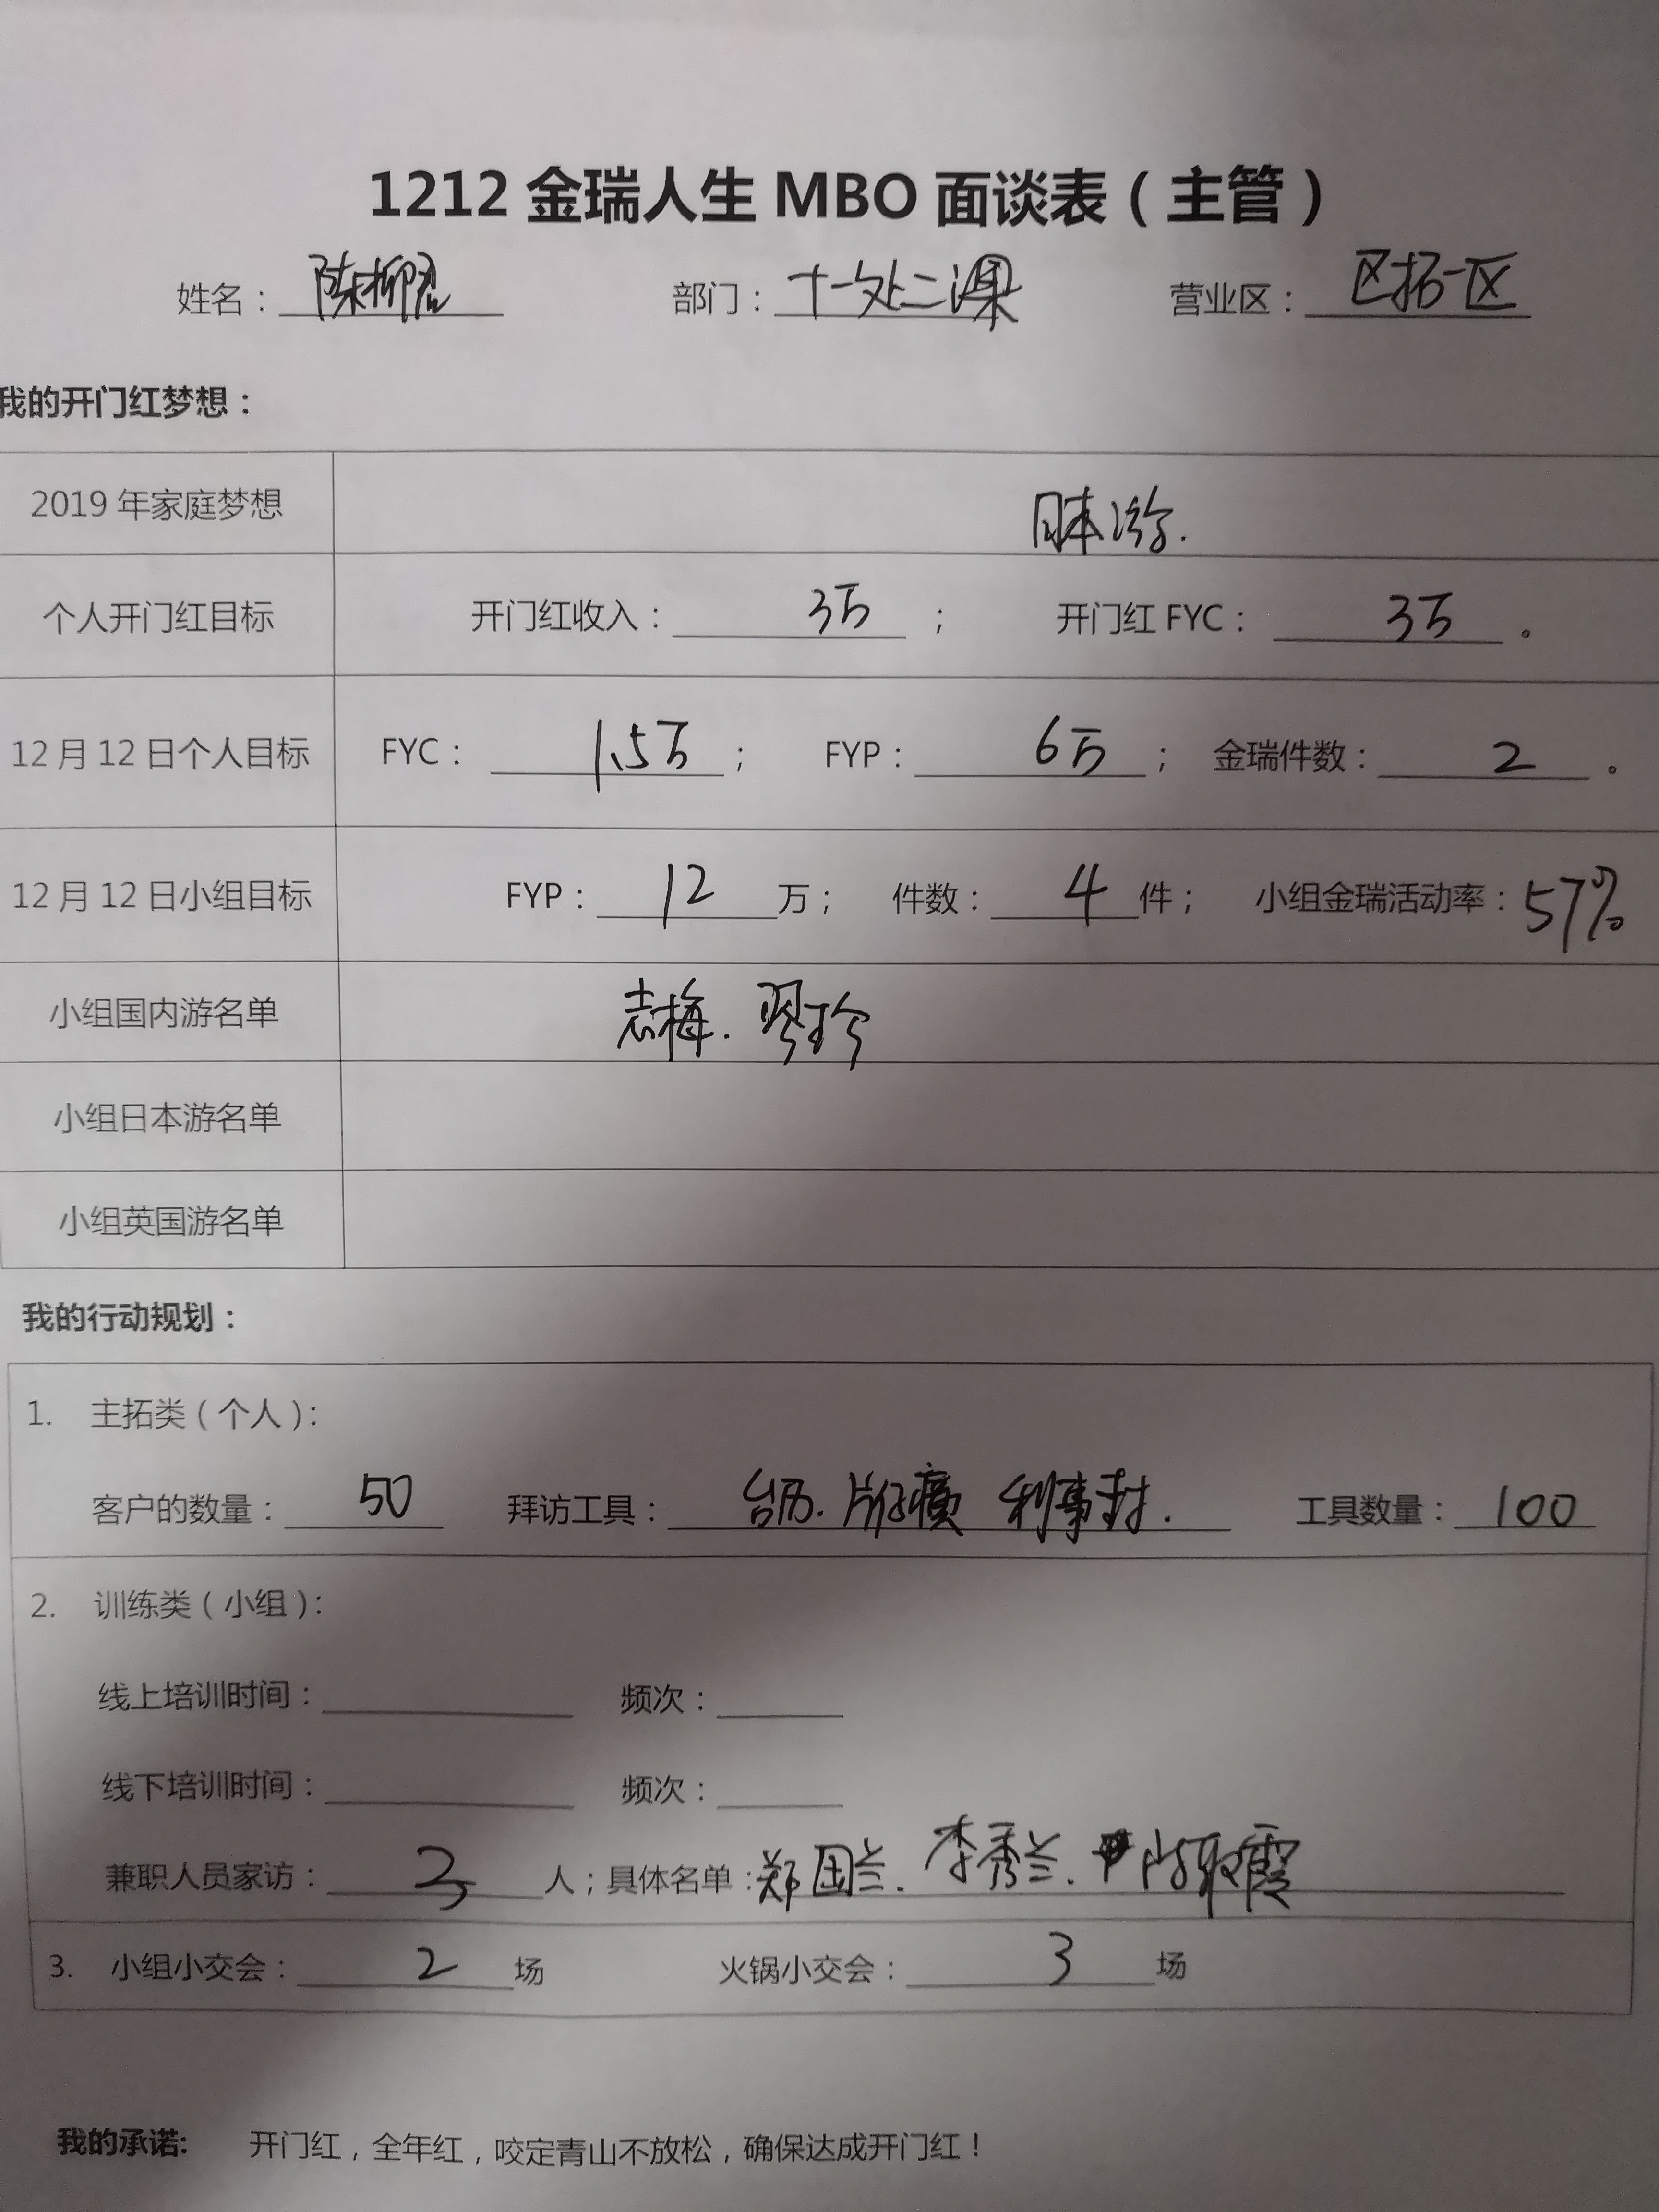 1212 金瑞人生 MBO 面谈表（主管）
姓名：陈柳君 部门：十一处二课 营业区：区拓一区
我的开门红梦想：
2019 年家庭梦想 日本游.
个人开门红目标 开门红收入：3万； 开门红 FYC：3万。
12 月 12 日个人目标 FYC：1.5万； FYP：6万； 金瑞件数：2。
12 月 12 日小组目标 FYP：12万； 件数：4件； 小组金瑞活动率：57%
小组国内游名单 志梅.
小组日本游名单
小组英国游名单
我的行动规划：
1. 主拓类（个人）：
客户的数量：50 拜访工具：台历. 利事封. 工具数量：100
2. 训练类（小组）：
线上培训时间： 频次：
线下培训时间： 频次：
兼职人员家访：3人；具体名单：郑国兰. 李秀兰.
3. 小组小交会：2场 火锅小交会：3场
我的承诺: 开门红，全年红，咬定青山不放松，确保达成开门红！